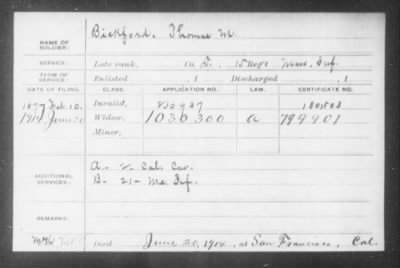 NAME OF SOLDIER: Bickford, Thomas M.
SERVICE: Late rank, Co. F, 15 Reg't Mass. Inf.
TERM OF SERVICE: Enlisted , 1 Discharged , 1
DATE OF FILING. CLASS. APPLICATION NO. LAW. CERTIFICATE NO.
1877 Feb. 10. Invalid,
1914 June 30 Widow, 1030300 a 799901
Minor,
ADDITIONAL SERVICES: A- 2- Cal. Cav.
B- 21- Me Inf.
REMARKS:
Died June 20, 1914, at San Francisco, Cal.